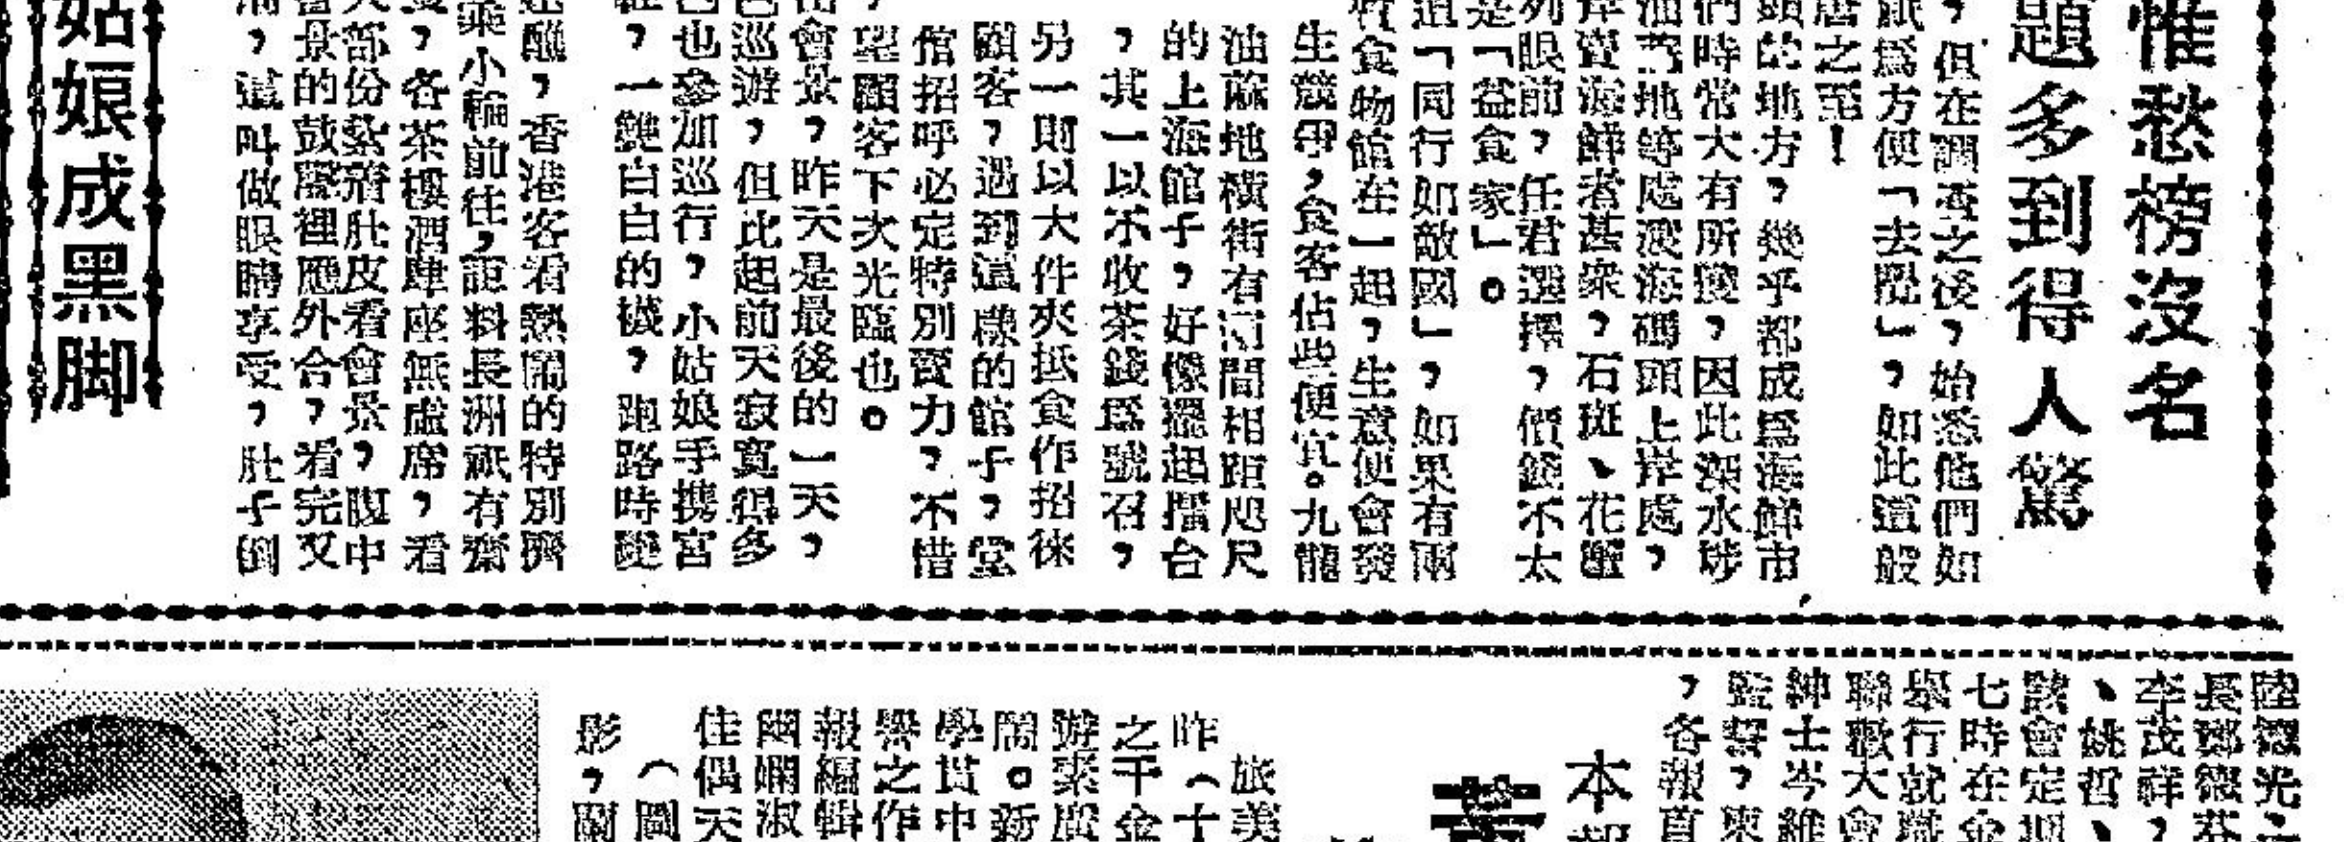 惟愁榜沒名
題多到得人驚
，但在調查之後，始悉他們如
祇爲方便「去殿」，如此這般
唐之至！
頭的地方，幾乎都成爲海鮮市
們時常大有所獲，因此深水埗
油蔴地等處渡海碼頭上岸處，
岸賣海鮮者甚衆，石斑、花蟹
列眼前，任君選擇，價錢不太
是「益食家」。
「同行如敵國」，如果有兩
食物館在一起，生意便會發
生競爭，食客佔些便宜。九龍
油蔴地橫街有兩間相距咫尺
的上海館子，好像擺起擂台
，其一以不收茶錢爲號召，
另一則以大件夾抵食作招徠
顧客，遇到這樣的館子，堂
倌招呼必定特別賣力，不惜
，望顧客下次光臨也。
會景，昨天是最後的一天，
色巡遊，但此起前天寂寞得多
也參加巡行，小姑娘手携宮
，一雙白白的襪，跑路時變
姑娘成黑脚
建醮，香港客看熱鬧的特別擠
乘小輪前往，詎料長洲祇有齋
，各茶樓酒肆座無虛席，看
大部份紮着肚皮看會景，腹中
會景的鼓聲裡應外合，看完又
，這叫做眼睛享受，肚子倒
陸德光
長鄭德芬
李茂祥，
、姚哲、
該會定期
七時在金
舉行就職
聯歡大會
紳士岑維
監誓，東
，各報首
本報
旅美
昨（十
之千金
遊業廣
閣。新
學貫中
譽之作
報編輯
幽嫻淑
佳偶天
（圖
影，關